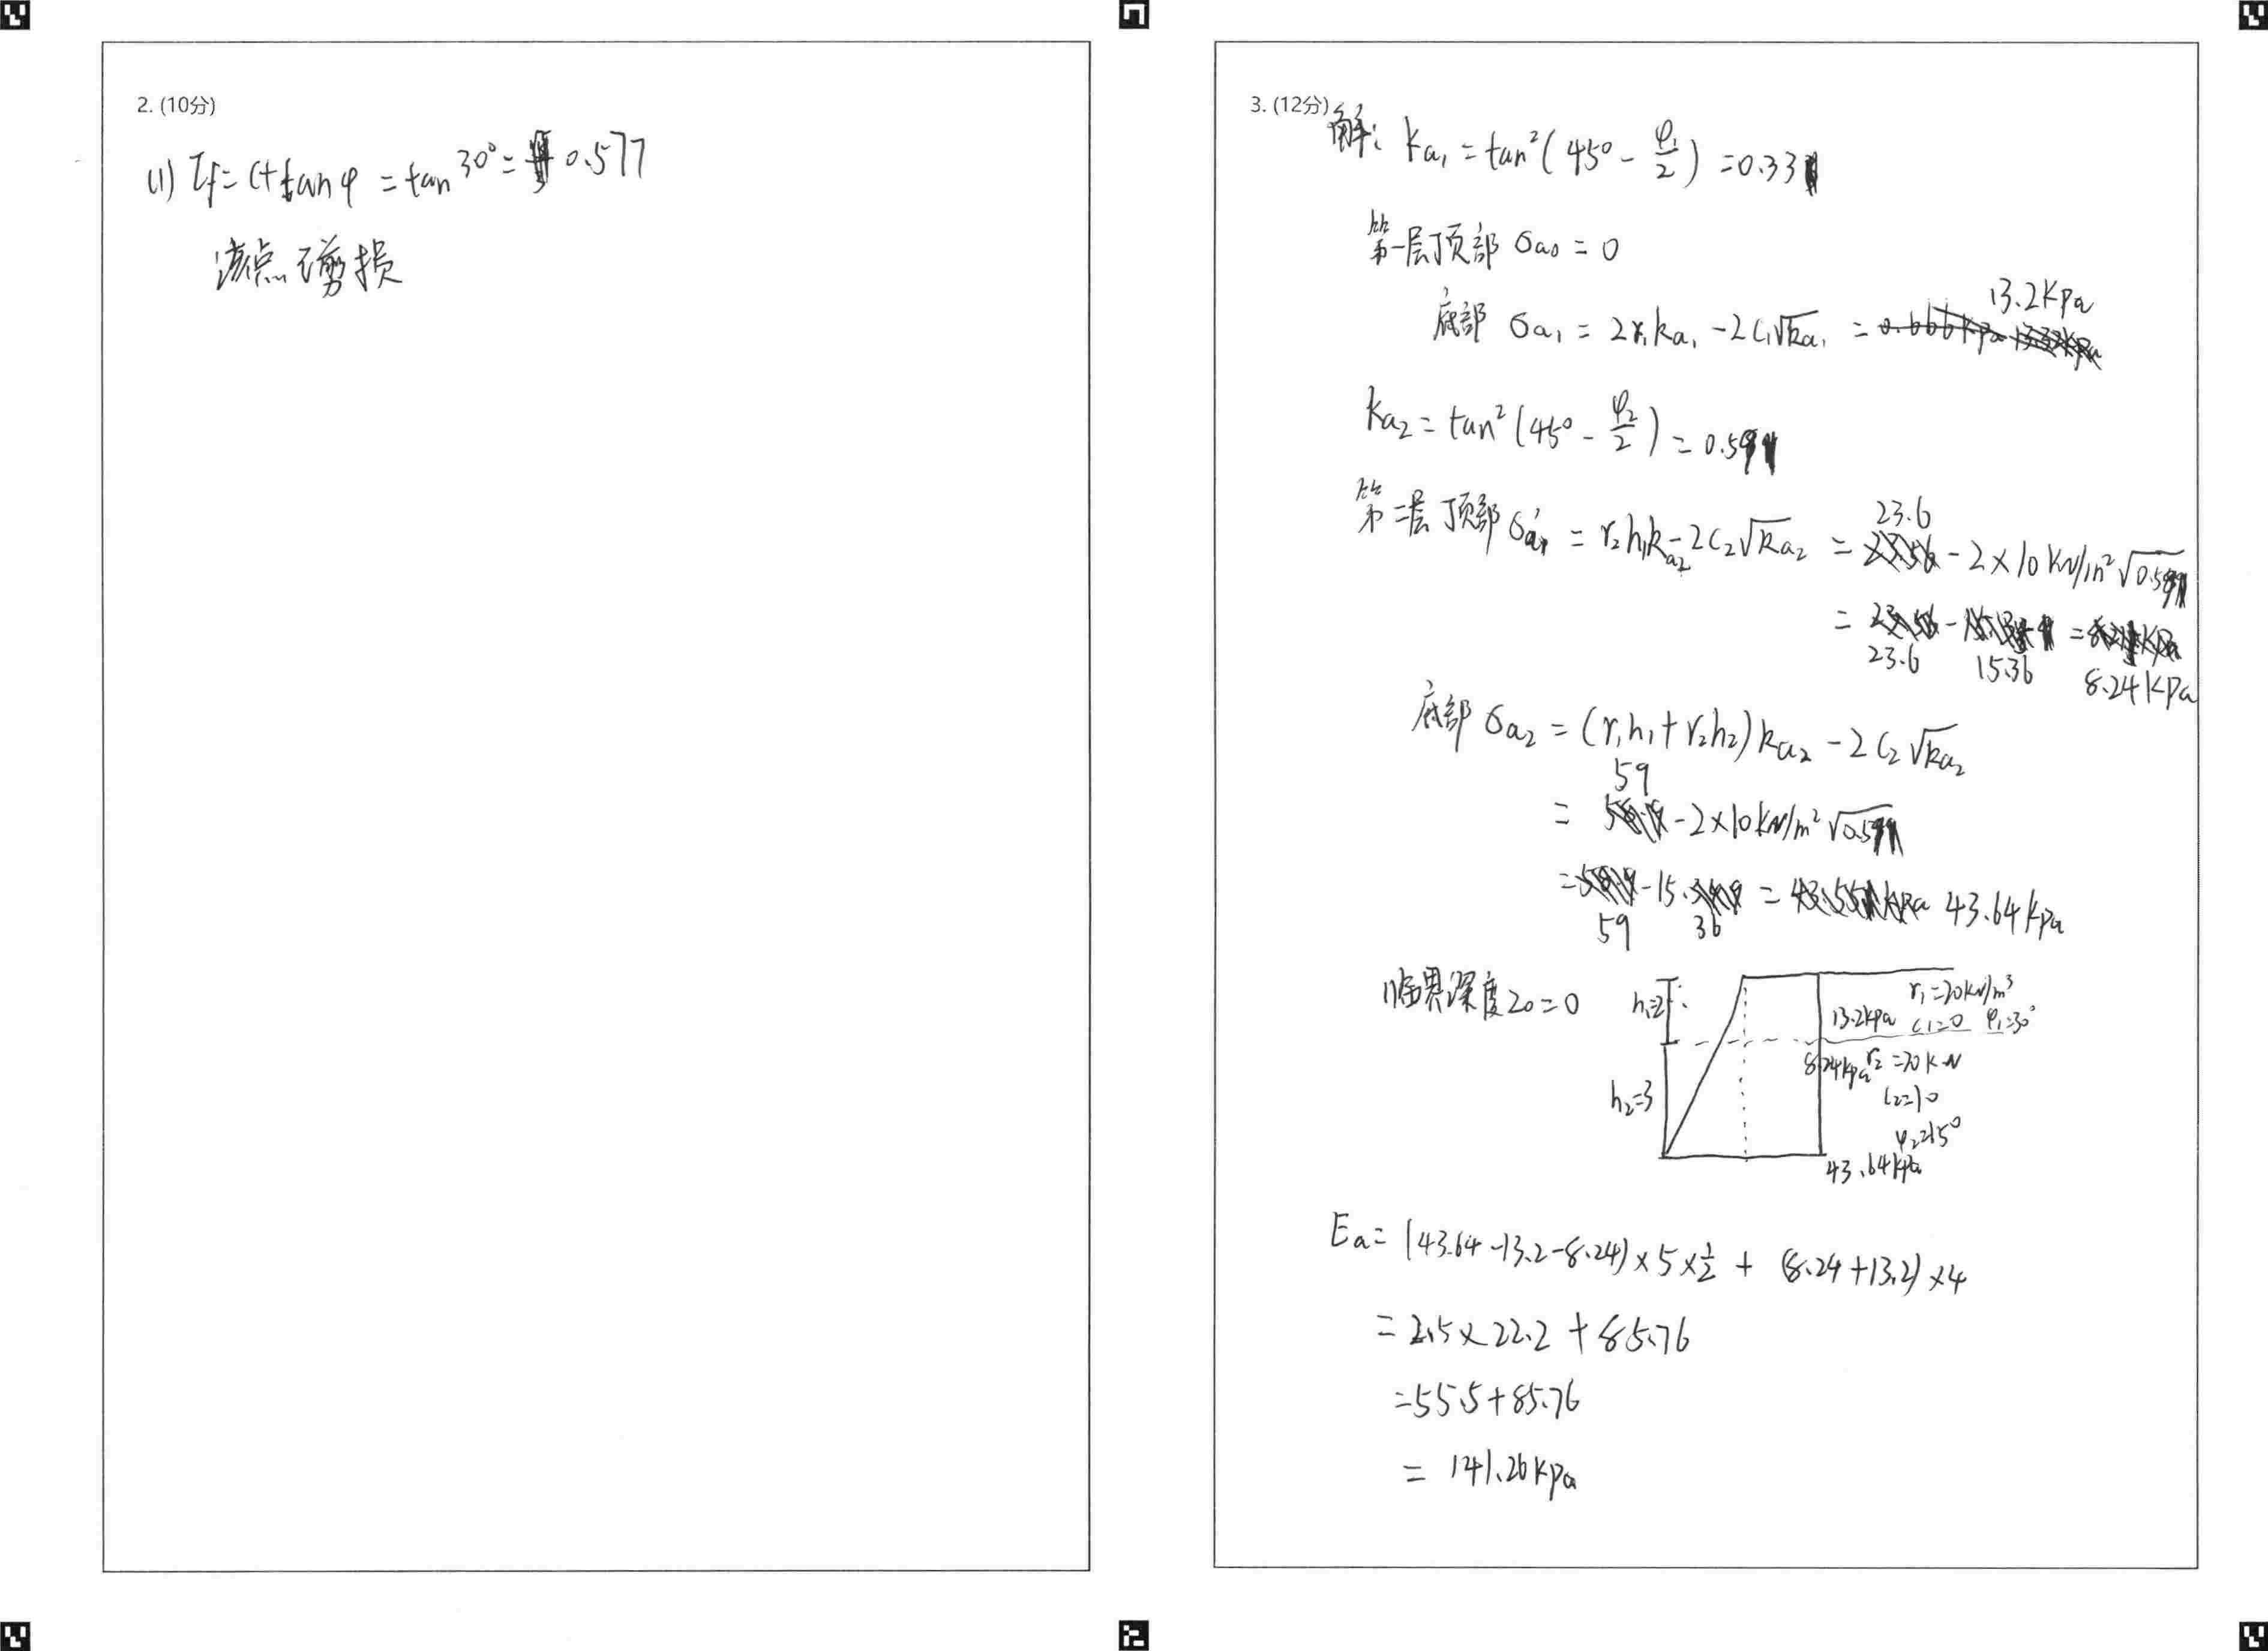 2. (10分)
(1) τf = C+tanφ = tan 30° = 0.577
该点已剪损
3. (12分) 解: ka₁ = tan²(45° - φ₁/2) = 0.33
第一层顶部 σa₀ = 0
13.2kpa
底部 σa₁ = 2r₁ka₁ - 2C₁√ka₁ =
ka₂ = tan²(45° - φ₂/2) = 0.59
第二层顶部 σa₁' = r₂h₁ka₂ - 2C₂√ka₂ = 23.6 - 2×10KN/m²√0.59
= 23.6 - 15.36 = 8.24KPa
底部 σa₂ = (r₁h₁+r₂h₂)ka₂ - 2C₂√ka₂
= 59 - 2×10KN/m²√0.59
= 59 - 15.36 = 43.64kpa
临界深度z₀=0
h₁=2
r₁=20KN/m³
13.2kpa C₁=0 φ₁=30°
8.24kpa r₂=20KN
h₂=3
C₂=10
φ₂=15°
43.64kpa
Ea = (43.64-13.2-8.24)×5×1/2 + (8.24+13.2)×4
= 2.5×22.2+85.76
=55.5+85.76
= 141.26kpa